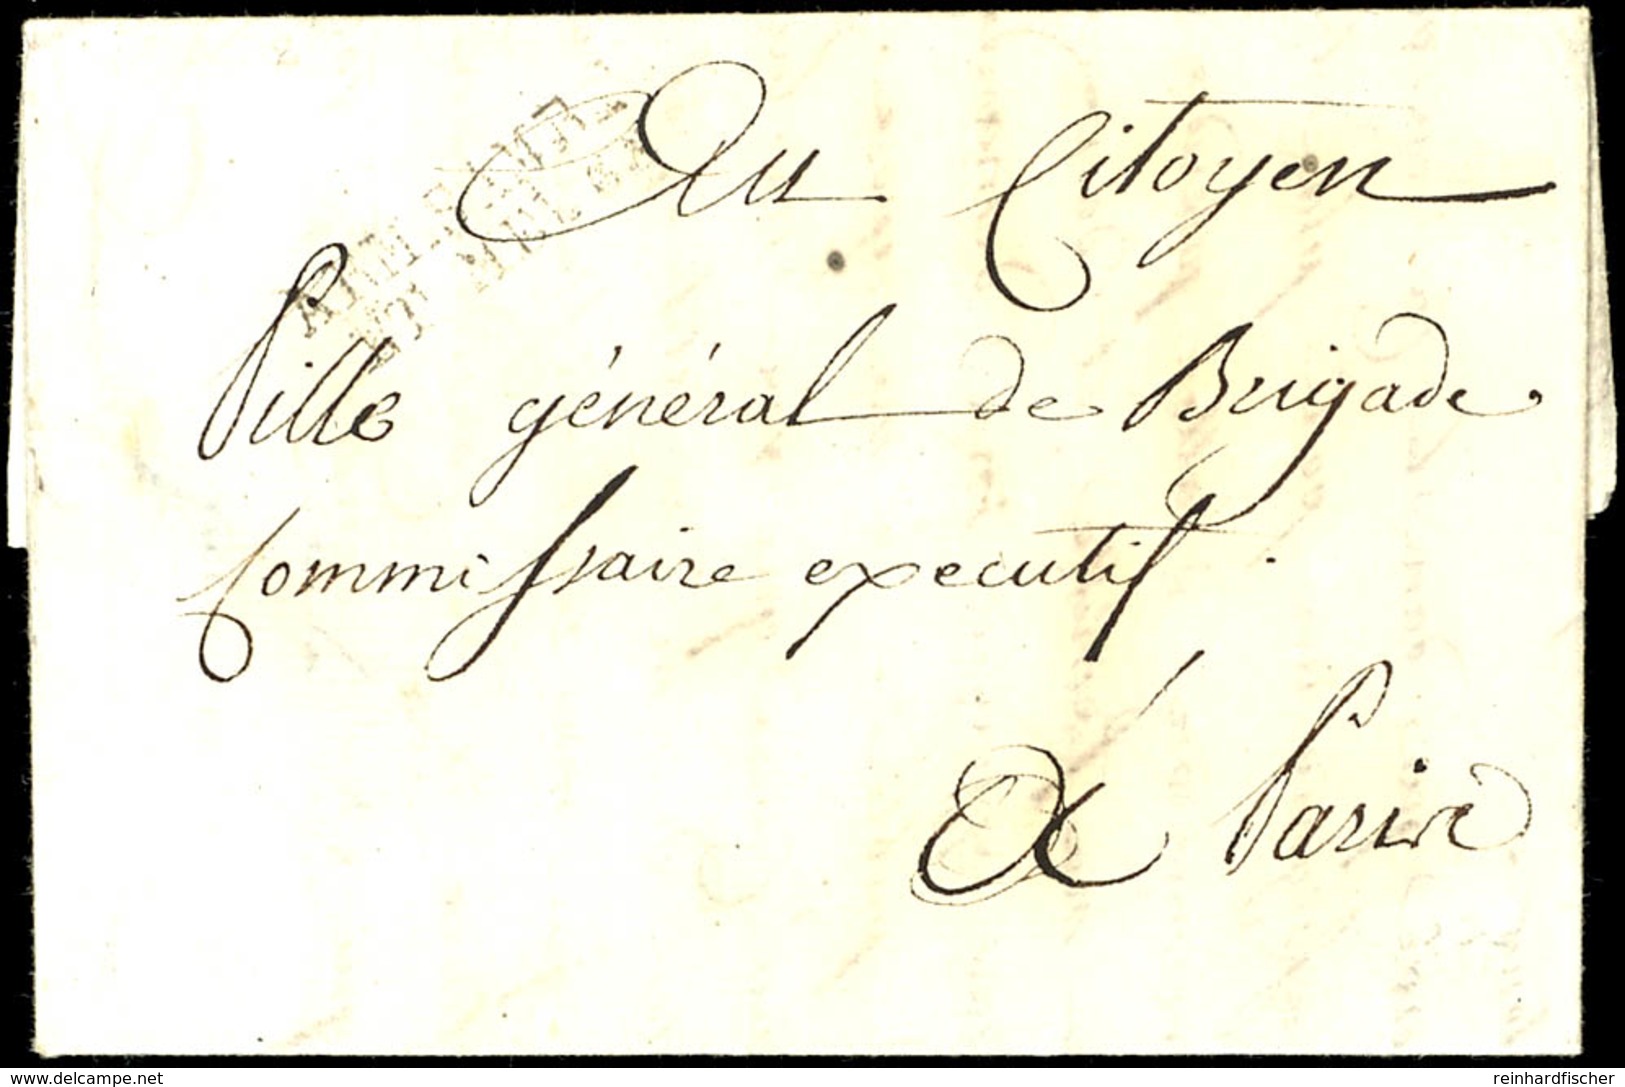 Au Citoyen
Pille général de Brigade
Commissaire executif.
A Paris
www.delcampe.net
reinhardfischer